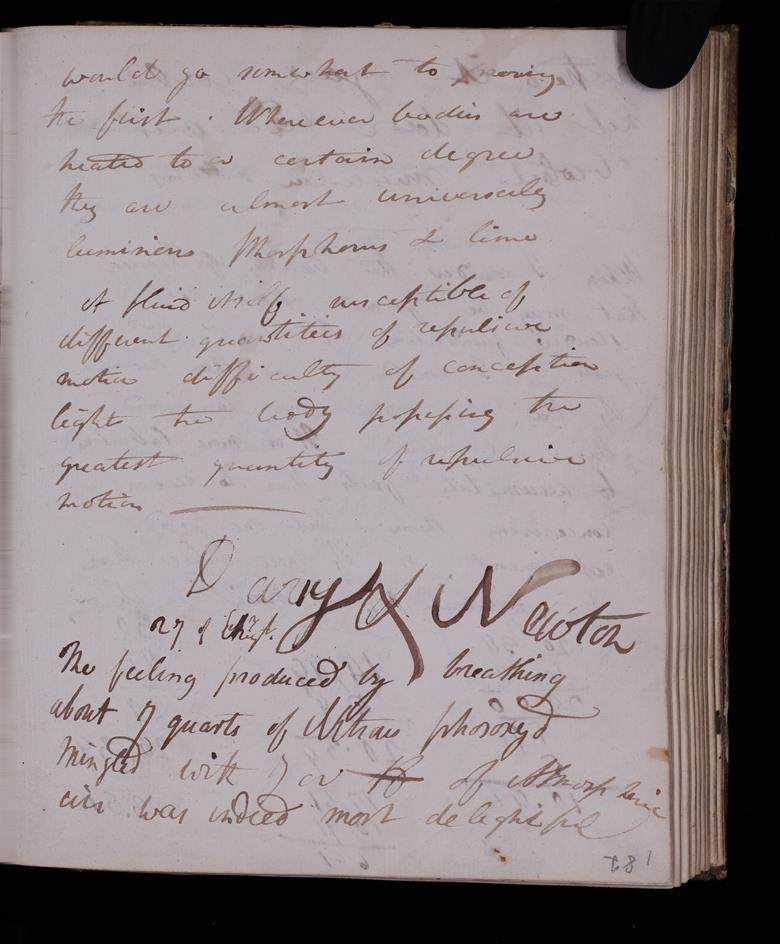 would go somewhat to proving
the first. Whenever bodies are
heated to a certain degree
they are almost universally
luminous Phosphorus & lime
A fluid itself susceptible of
different quantities of repulsive
motion difficulty of conception
light the body possessing the
greatest quantity of repulsive
motion
Davy & Newton
27 of
The feeling produced by breathing
about 7 quarts of Nitrous phosoxyd
Mingled with 7 or of Atmospheric
air was indeed most delightful